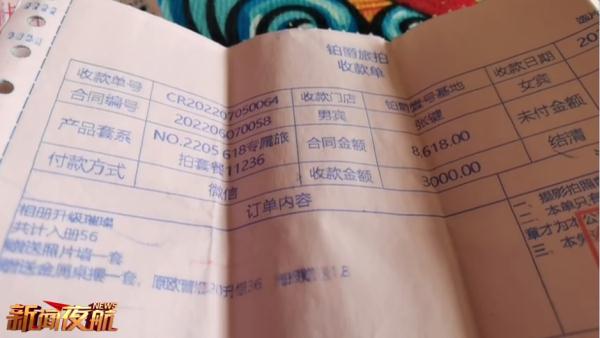 铂爵旅拍
收款单
收款单号 CR202207050064 收款门店 铂爵壹号基地 收款日期
合同编号 202206070058 男宾 张健 女宾
产品套系 NO.2205 618专属旅拍套餐11236 合同金额 8,618.00 未付金额
付款方式 微信 收款金额 3000.00 结清
订单内容
相册升级璀璨
共计入册56
赠送照片墙一套
赠送金属桌摆一套,
一、摄影拍照
二、本单只
章才为
三、本
新闻夜航
NEWS